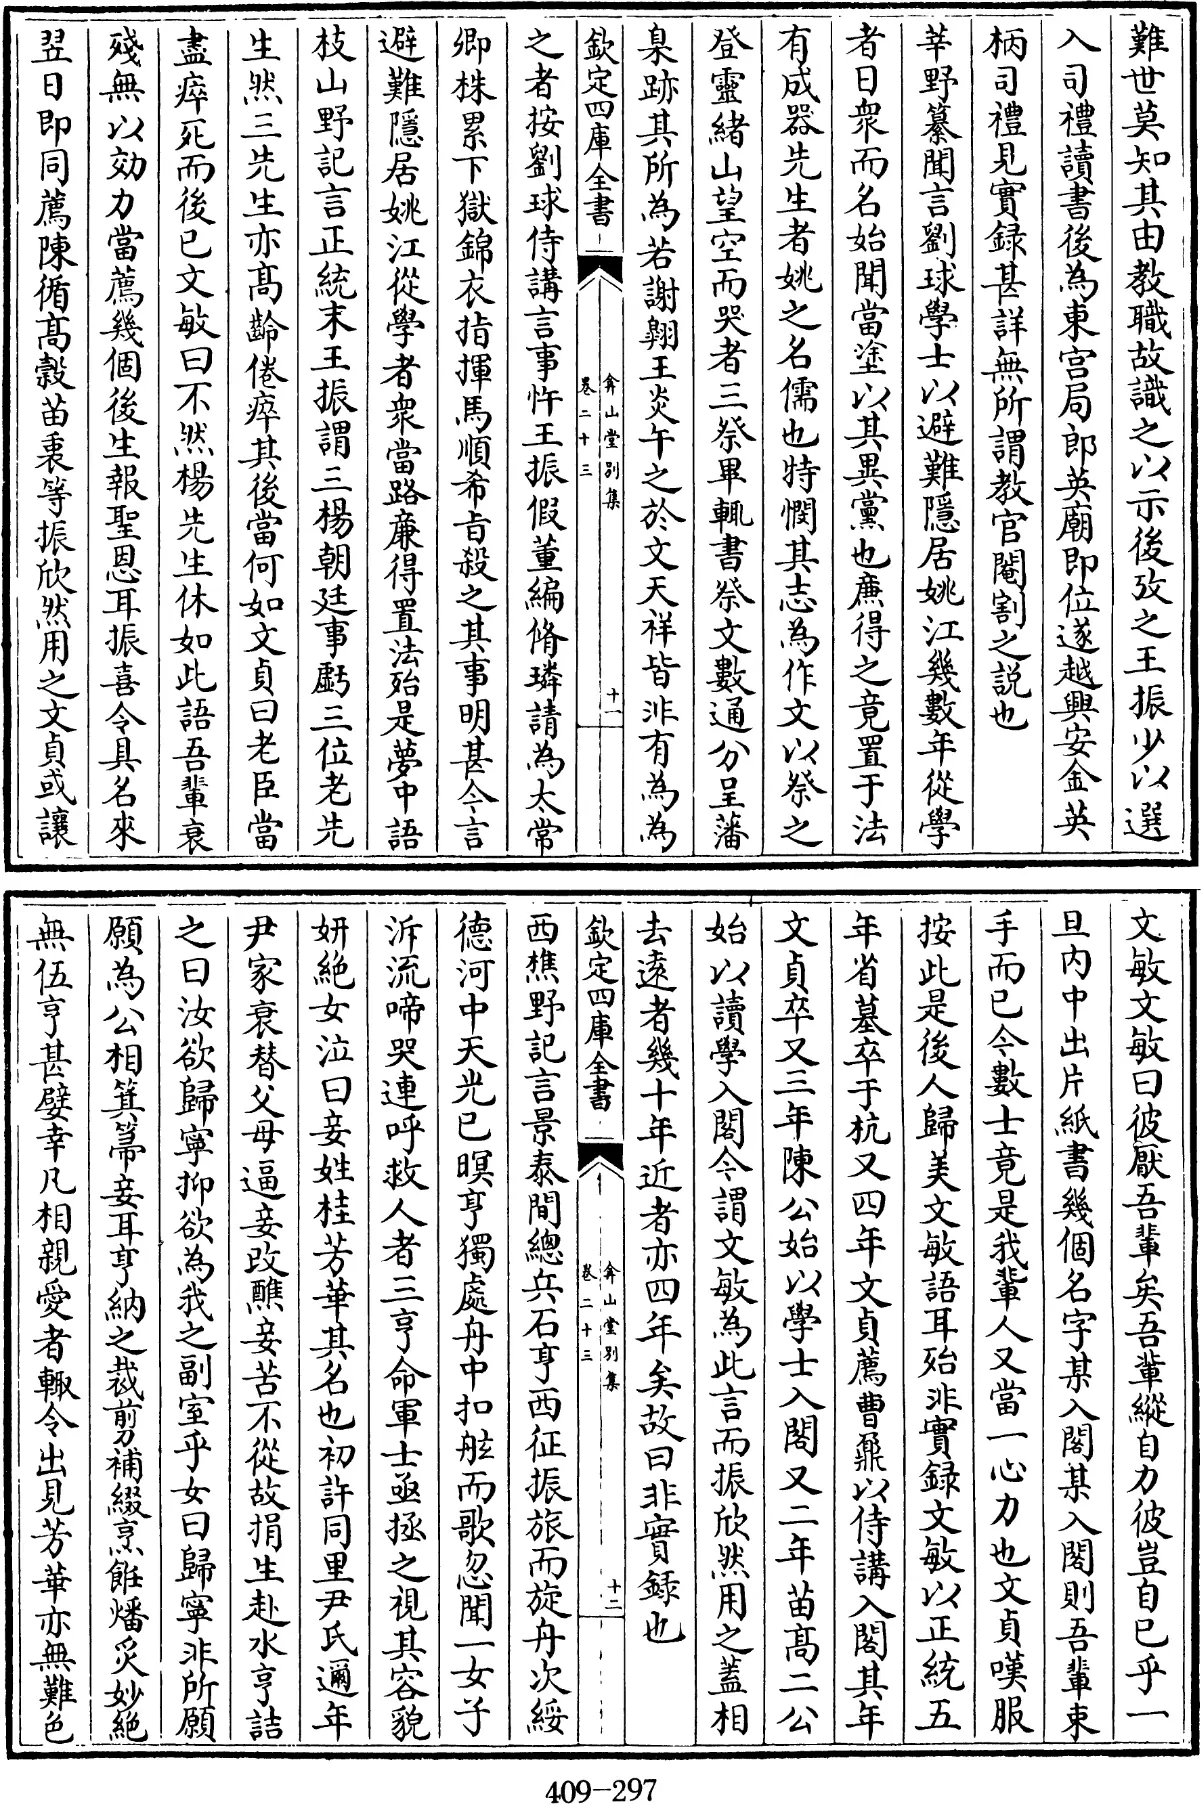 難世莫知其由教職故識之以示後攷之王振少以選
入司禮讀書後為東宮局郎英廟即位遂越興安金英
柄司禮見實録甚詳無所謂教官閹割之説也
莘野纂聞言劉球學士以避難隱居姚江幾數年從學
者日衆而名始聞當塗以其異黨也㢘得之竟置于法
有成器先生者姚之名儒也特憫其志為作文以祭之
登靈緒山望空而哭者三祭畢輒書祭文數通分呈藩
臬跡其所為若謝翺王炎午之於文天祥皆非有為為
欽定四庫全書
弇山堂别集
卷二十三
十一
之者按劉球侍講言事忤王振假董編脩璘請為太常
卿株累下獄錦衣指揮馬順希旨殺之其事明甚今言
避難隱居姚江從學者衆當路廉得置法殆是夢中語
枝山野記言正統末王振謂三楊朝廷事虧三位老先
生然三先生亦髙齡倦瘁其後當何如文貞曰老臣當
盡瘁死而後已文敏曰不然楊先生休如此語吾輩衰
殘無以効力當薦幾個後生報聖恩耳振喜令具名來
翌日即同薦陳循髙榖苗衷等振欣然用之文貞或讓
文敏文敏曰彼厭吾輩矣吾輩縱自力彼豈自已乎一
旦内中出片紙書幾個名字某入閣某入閣則吾輩束
手而已今數士竟是我輩人又當一心力也文貞嘆服
按此是後人歸美文敏語耳殆非實録文敏以正統五
年省墓卒于杭又四年文貞薦曹鼐以侍講入閣其年
文貞卒又三年陳公始以學士入閣又二年苗髙二公
始以讀學入閣今謂文敏為此言而振欣然用之蓋相
去遠者幾十年近者亦四年矣故曰非實録也
欽定四庫全書
弇山堂别集
卷二十三
十二
西樵野記言景泰間總兵石亨西征振旅而旋舟次綏
德河中天光已暝亨獨處舟中扣舷而歌忽聞一女子
泝流啼哭連呼救人者三亨命軍士亟拯之視其容貌
妍絶女泣曰妾姓桂芳華其名也初許同里尹氏邇年
尹家衰替父母逼妾改醮妾苦不從故捐生赴水亨詰
之曰汝欲歸寧抑欲為我之副室乎女曰歸寧非所願
願為公相箕箒妾耳亨納之裁剪補綴烹飪燔炙妙絶
無伍亨甚嬖幸凡相親愛者輙令出見芳華亦無難色
409-297